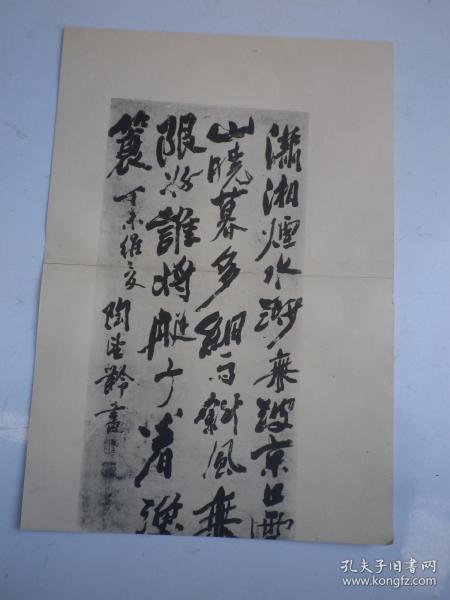 瀟湘煙水渺無波京口雲
山曉暮多細雨斜風無
限好誰將艇子着漁
蓑 丁未維夏 陶望齡書
孔夫子旧书网
www.kongfz.com